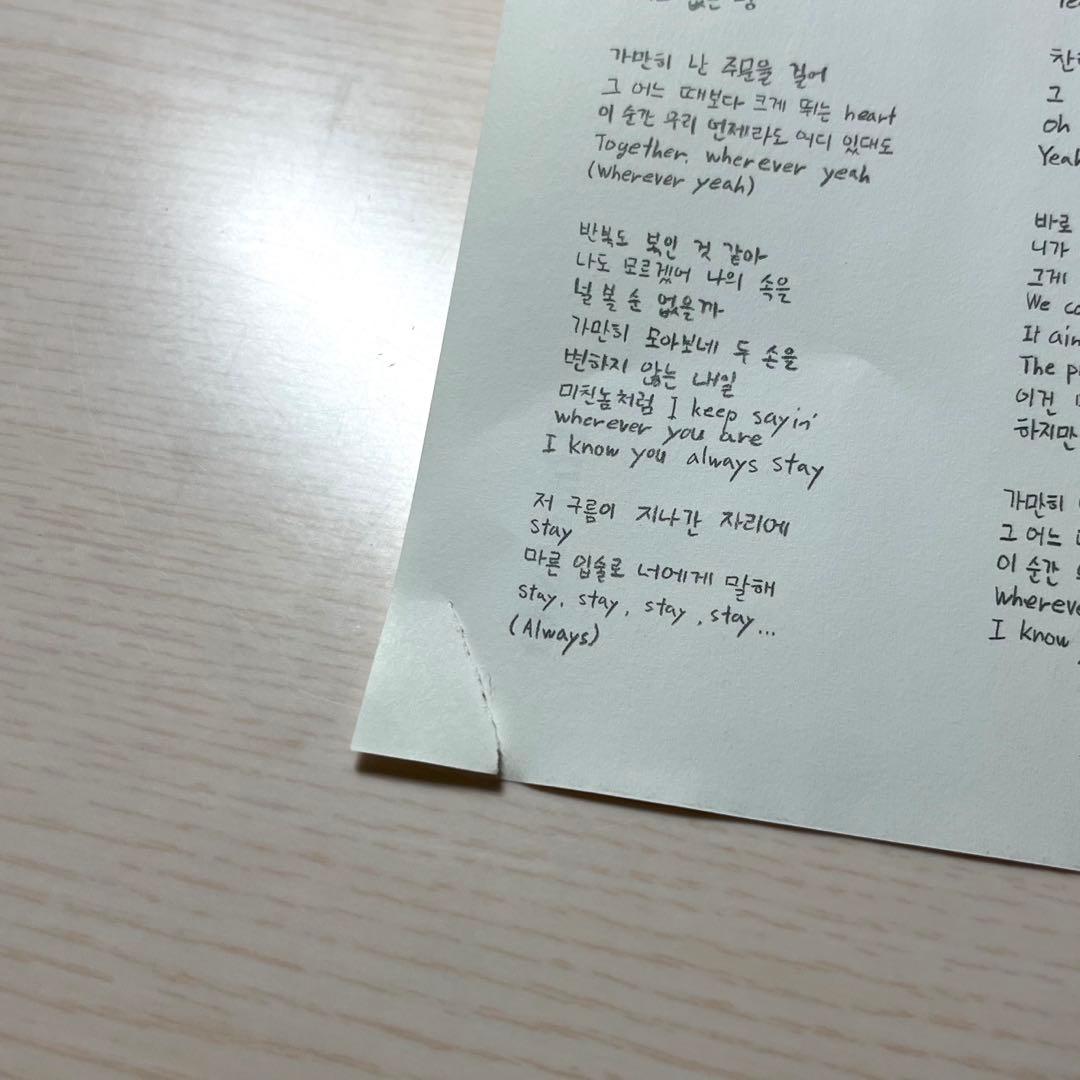 가만히 난 주문을 걸어
그 어느 때보다 크게 뛰는 heart
이 순간 우리 언제라도 어디 있대도
Together, wherever yeah
(wherever yeah)
반복도 볶인 것 같아
나도 모르겠어 나의 속을
널 볼 순 없을까
가만히 모아보네 두 손을
변하지 않는 내일
미친놈처럼 I keep sayin'
wherever you are
I know you always stay
저 구름이 지나간 자리에
stay
마른 입술로 너에게 말해
stay, stay, stay, stay...
(Always)
그
oh
Yeah
바로
니가
그게
We
It ain
The
이건
하지만
가만히
그 어느
이 순간
I know